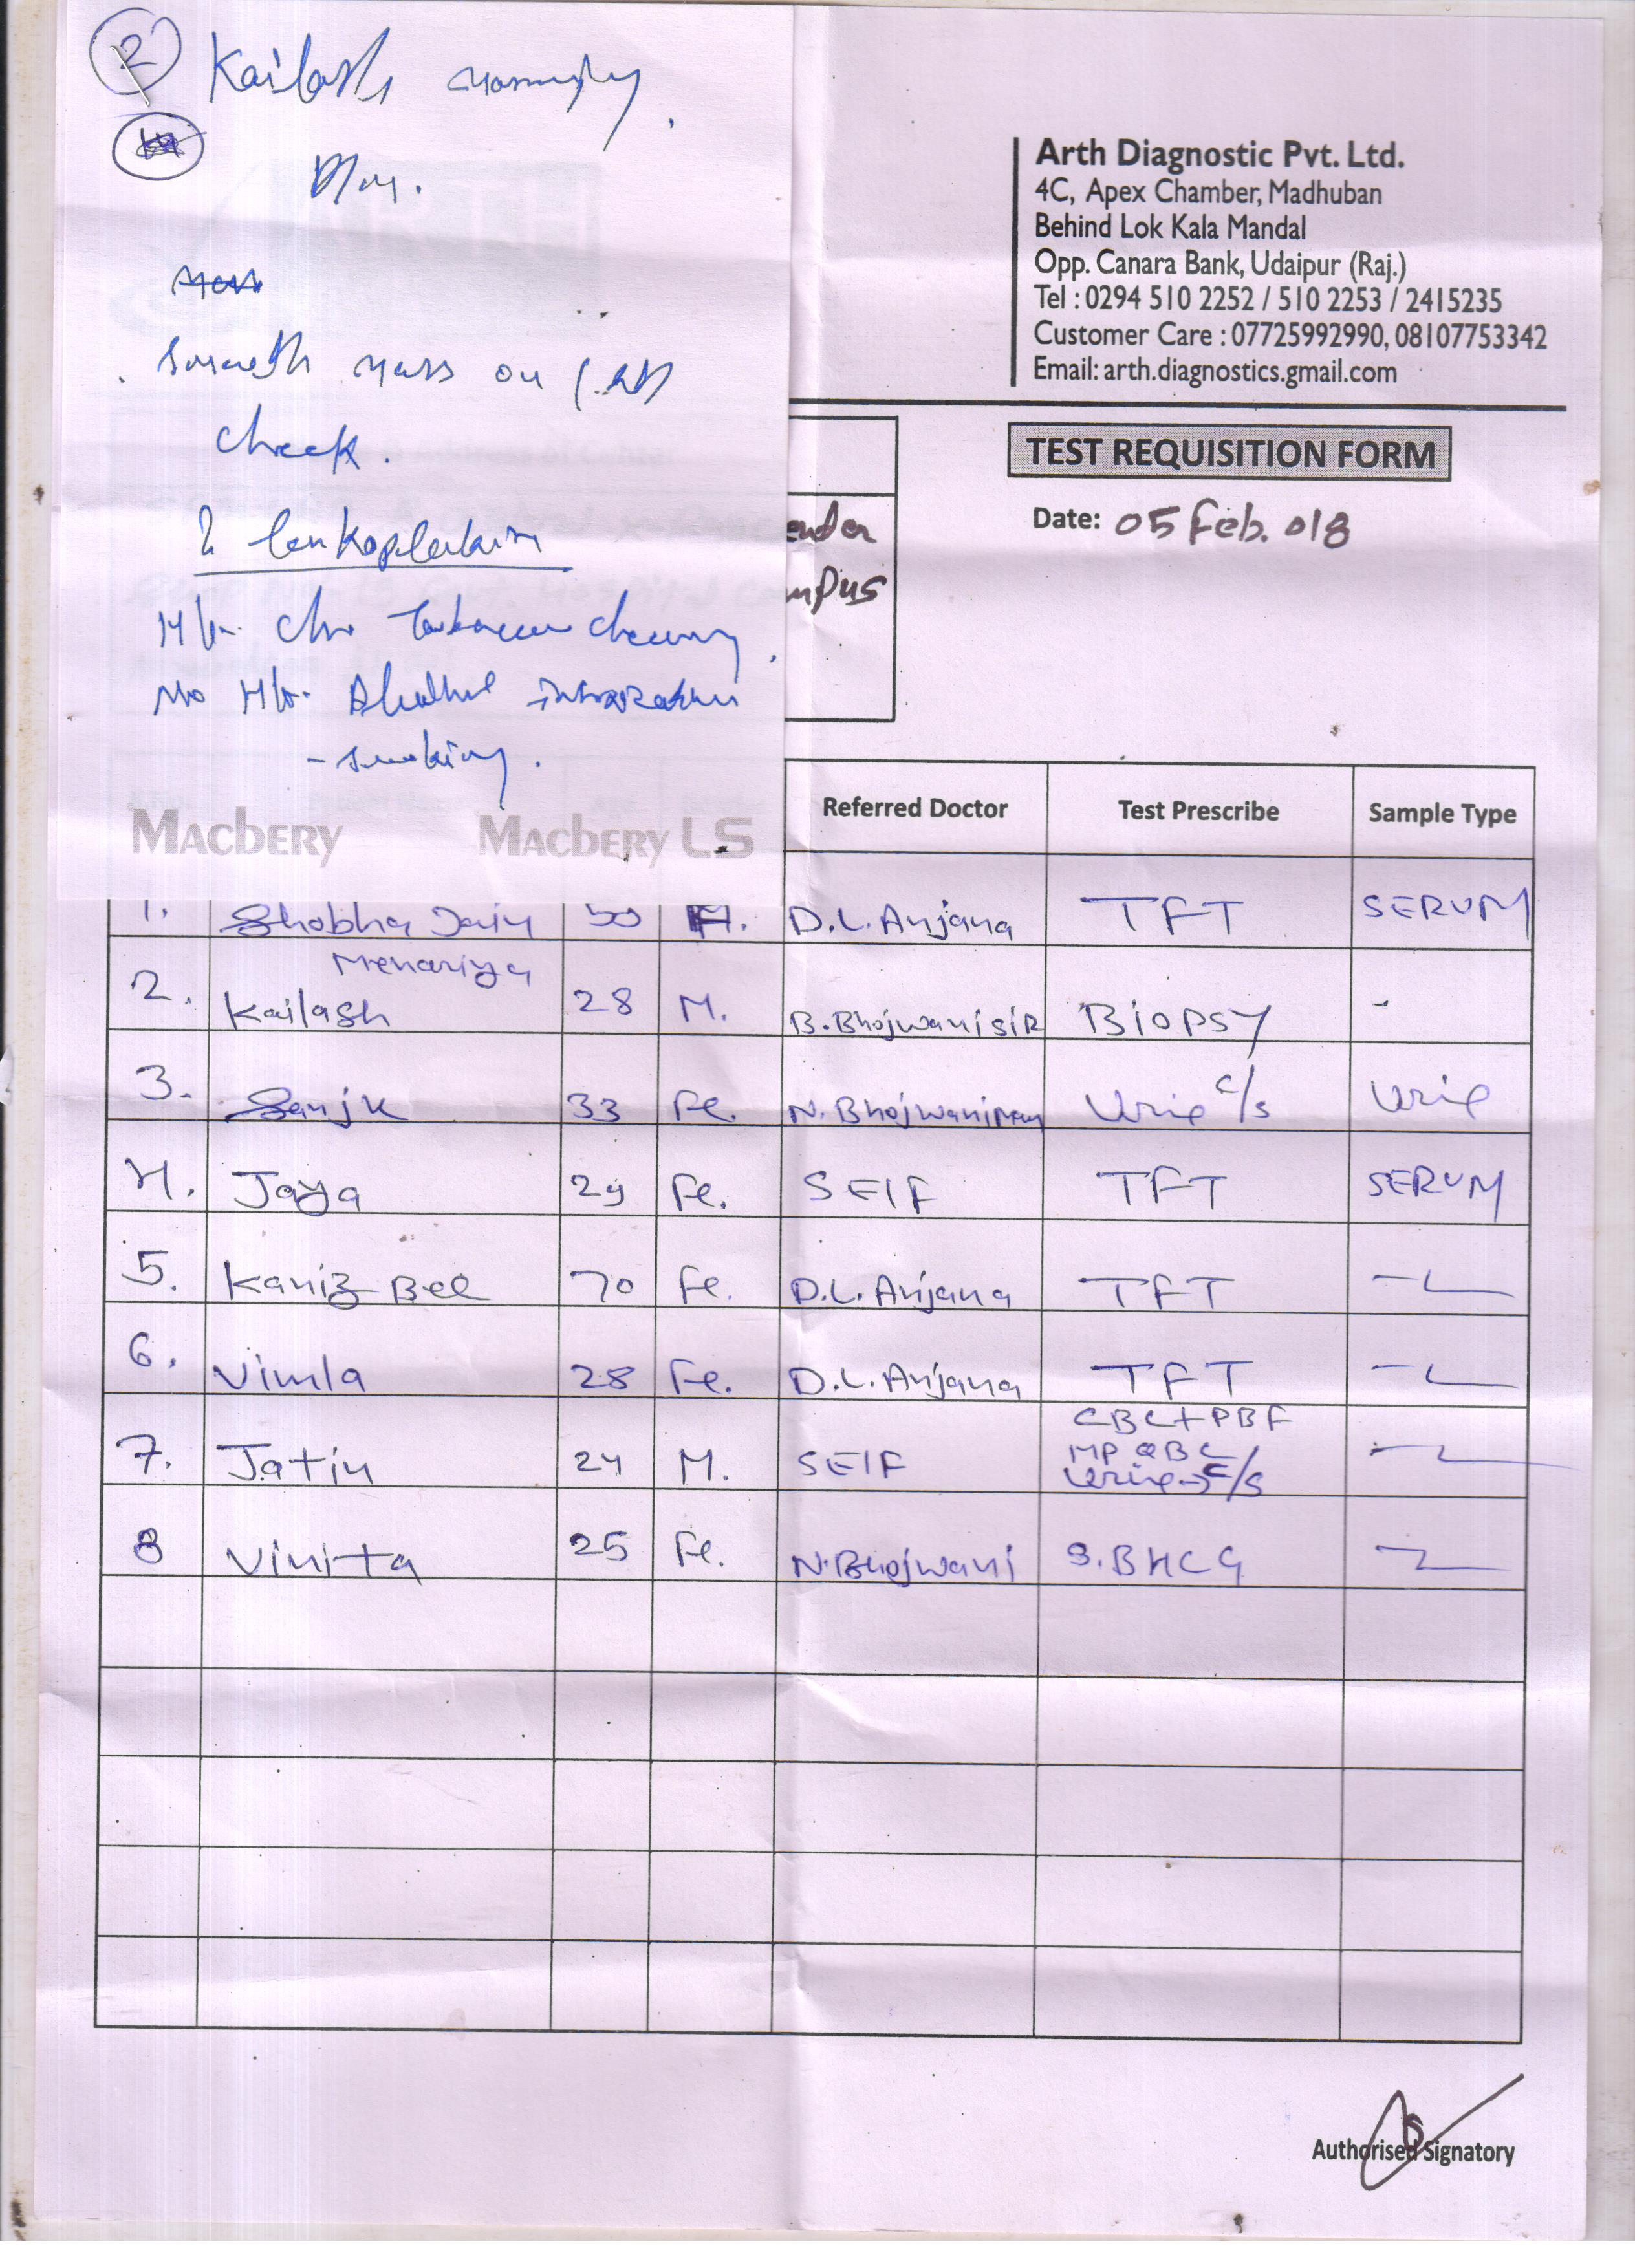 2
Kailash
smooth mass on left
check.
? leukoplakia
H/o chr Tobacco chewing
No H/o Alcohol intoxication
- smoking.
MACBERY MACBERY LS
Arth Diagnostic Pvt. Ltd.
4C, Apex Chamber, Madhuban
Behind Lok Kala Mandal
Opp. Canara Bank, Udaipur (Raj.)
Tel : 0294 510 2252 / 510 2253 / 2415235
Customer Care : 07725992990, 08107753342
Email: arth.diagnostics.gmail.com
TEST REQUISITION FORM
Date: 05 Feb. 018
ender
mpus
Referred Doctor Test Prescribe Sample Type
1. Shobha Jain 50 D.L. Anjana TFT SERUM
2. Kailash Menariya 28 M. B. Bhojwani SIR BIOPSY -
3. Sanju 33 Fe. N. Bhojwani Urine c/s Urine
4. Jaya 29 Fe. SElF TFT SERUM
5. Kaniz Bee 70 Fe. D.L. Anjana TFT
6. Vimla 28 Fe. D.L. Anjana TFT
7. Jatin 24 M. SElF CBC+PBF
MP QBC
Urine → C/S
8 Vinita 25 Fe. N. Bhojwani S. BHCG
Authorised Signatory